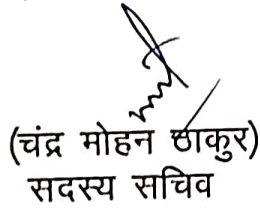 (चंद्र मोहन ठाकुर)
सदस्य सचिव